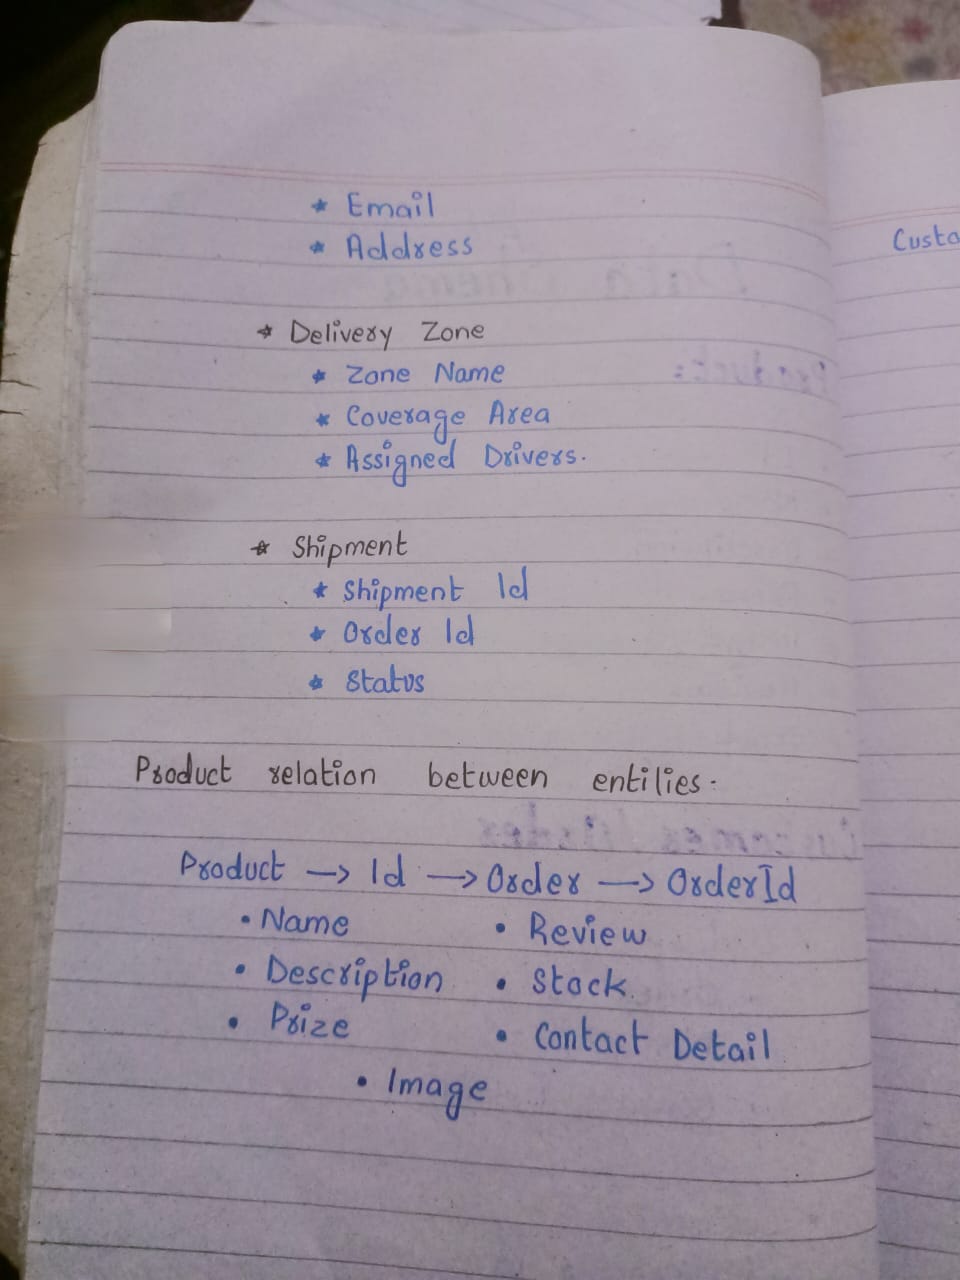 * Email
* Address
Custo
* Delivery Zone
* Zone Name
* Coverage Area
* Assigned Drivers.
* Shipment
* Shipment Id
* Order Id
* Status
Product relation between entilies.
Product → Id → Order → OrderId
• Name • Review
• Description • Stock
• Prize • Contact Detail
• Image